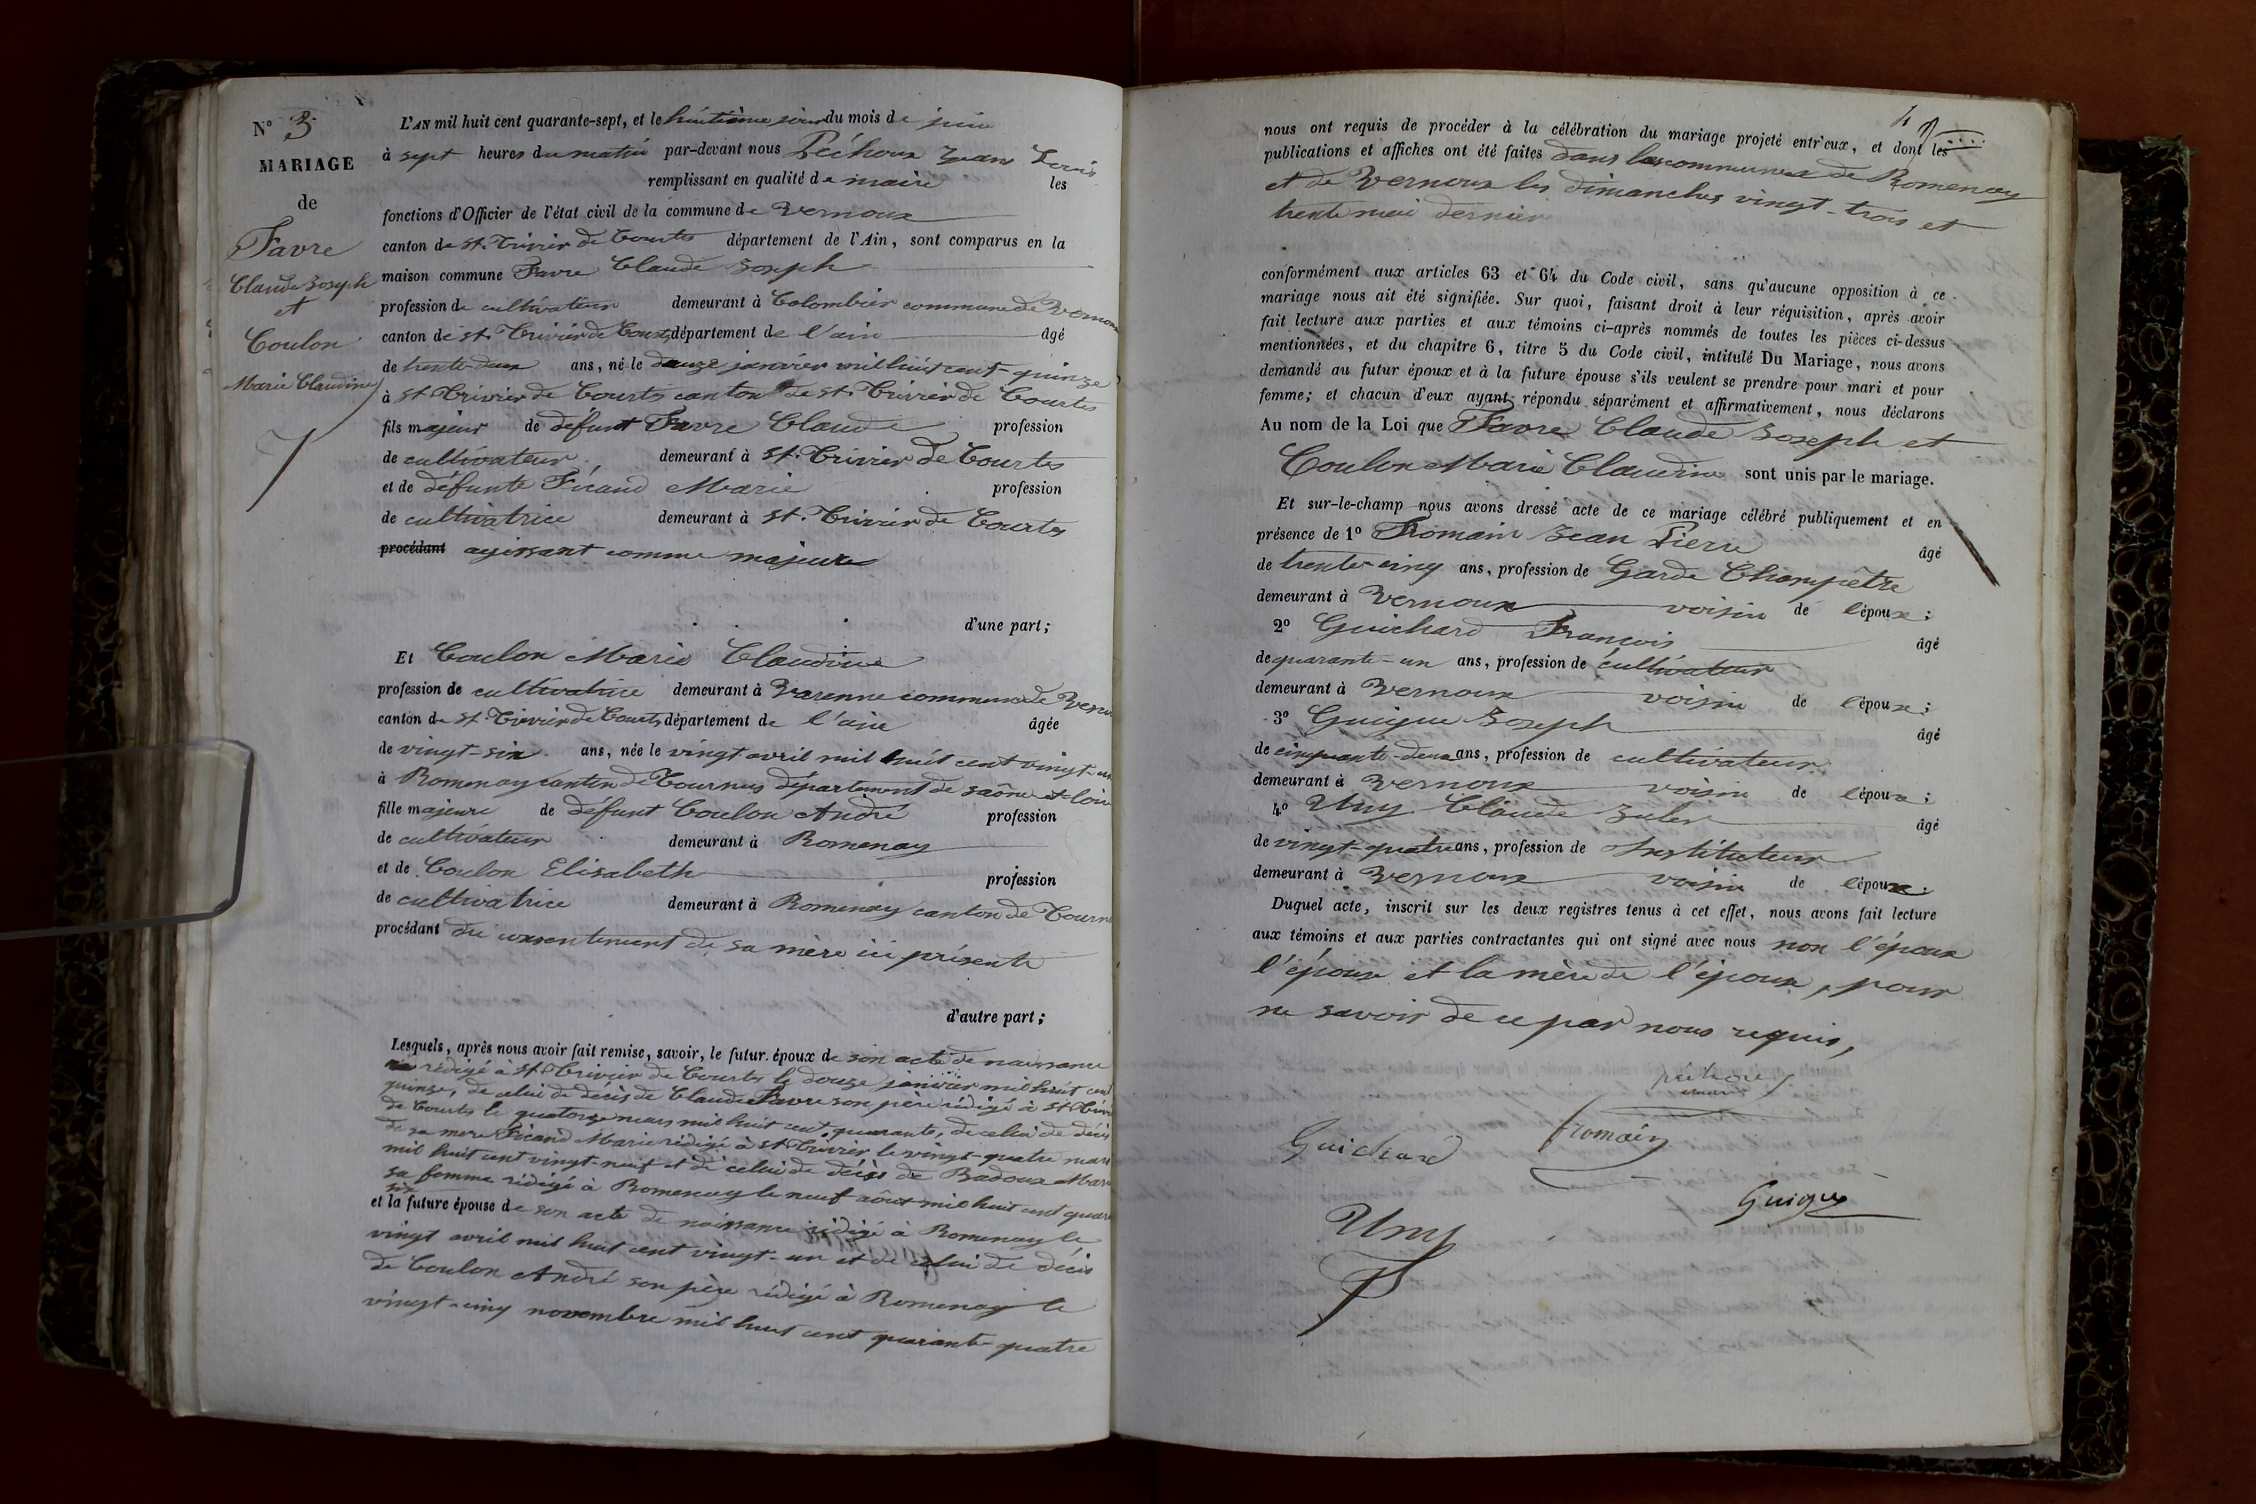 N° 3
MARIAGE
de
Favre
Claude Joseph
et
Coulon
Marie Claudine
L'AN mil huit cent quarante-sept, et le huitième jour du mois de juin
à sept heures du matin par-devant nous Péchoux Jean Louis
remplissant en qualité de maire les
fonctions d'Officier de l'état civil de la commune de Vernoux
canton de St. Trivier de Courtes département de l'Ain, sont comparus en la
maison commune Favre Claude Joseph
profession de cultivateur demeurant à Colombier commune de Vernoux
canton de St. Trivier de Courtes département de l'ain âgé
de trente-deux ans, né le douze janvier mil huit cent quinze
à St Trivier de Courtes canton de St. Trivier de Courtes
fils majeur de défunt Favre Claude profession
de cultivateur demeurant à St. Trivier de Courtes
et de défunte Ficand Marie profession
de cultivatrice demeurant à St. Trivier de Courtes
procédant agissant comme majeur
d'une part;
Et Coulon Marie Claudine
profession de cultivatrice demeurant à Varenne commune de Vern
canton de St. Trivier de Courtes département de l'ain âgée
de vingt-six ans, née le vingt avril mil huit cent vingt-un
à Romenay canton de Tournus département de Saône et loire
fille majeure de défunt Coulon André profession
de cultivateur demeurant à Romenay
et de Coulon Elisabeth profession
de cultivatrice demeurant à Romenay canton de Tourn
procédant du consentement de sa mère ici présente
d'autre part;
Lesquels, après nous avoir fait remise, savoir, le futur époux de son acte de naissance
rédigé à St. Trivier de Courtes le douze janvier mil huit cent
quinze, de celui de décès de Claude Favre son père rédigé à St. Trivi
de Courtes le quatorze mars mil huit cent quarante, de celui de décès
de sa mere Ficand Marie rédigé à St. Trivier le vingt-quatre mars
mil huit cent vingt-neuf et de celui de décès de Badoux Mar
sa femme rédigé à Romenay le neuf août mil huit cent quara
six
et la future épouse de son acte de naissance rédigé à Romenay le
vingt avril mil huit cent vingt-un et de celui de décès
de Coulon André son père rédigé à Romenay le
vingt-cinq novembre mil huit cent quarante-quatre
4
nous ont requis de procéder à la célébration du mariage projeté entr'eux, et dont les
publications et affiches ont été faites dans les communes de Romenay
et de Vernoux les dimanches vingt-trois et
trente mai dernier
conformément aux articles 63 et 64 du Code civil, sans qu'aucune opposition à ce
mariage nous ait été signifiée. Sur quoi, faisant droit à leur réquisition, après avoir
fait lecture aux parties et aux témoins ci-après nommés de toutes les pièces ci-dessus
mentionnées, et du chapitre 6, titre 5 du Code civil, intitulé Du Mariage, nous avons
demandé au futur époux et à la future épouse s'ils veulent se prendre pour mari et pour
femme; et chacun d'eux ayant répondu séparément et affirmativement, nous déclarons
Au nom de la Loi que Favre Claude Joseph et
Coulon Marie Claudine sont unis par le mariage.
Et sur-le-champ nous avons dressé acte de ce mariage célébré publiquement et en
présence de 1° Fromain Jean Pierre âgé
de trente-cinq ans, profession de Garde Champêtre
demeurant à Vernoux voisin de l'époux;
2° Guichard François âgé
de quarante-un ans, profession de cultivateur
demeurant à Vernoux voisin de l'époux;
3° Guigue Joseph âgé
de cinquante-deux ans, profession de cultivateur
demeurant à Vernoux voisin de l'époux;
4° Uny Claude Jules âgé
de vingt-quatre ans, profession de Instituteur
demeurant à Vernoux voisin de l'époux.
Duquel acte, inscrit sur les deux registres tenus à cet effet, nous avons fait lecture
aux témoins et aux parties contractantes qui ont signé avec nous non l'époux
l'épouse et la mère de l'époux, pour
ne savoir de ce par nous requis,
péchoux
maire
Guichard
fromain
Guigue
Uny